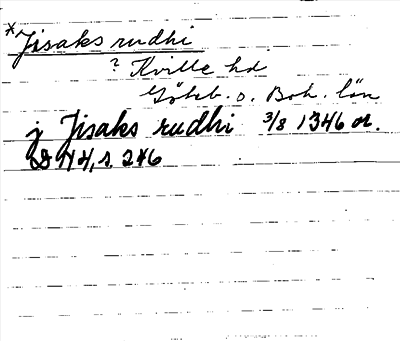 *Jisaks rudhi
? Kville hd
Göteb. o. Boh. län
j Jisaks rudhi 3/8 1346 or.
D N 4, s 246